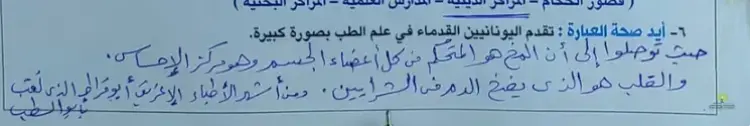 ( قصور الحكام – المراكز الدينية – المدارس العلمية – المراكز البحثية )
٦- أيد صحة العبارة : تقدم اليونانيين القدماء في علم الطب بصورة كبيرة.
حيث توصلوا إلى أن المخ هو المتحكم في كل أعضاء الجسم وهو مركز الإحساس.
والقلب هو الذى يضخ الدم فى الشرايين. ومن أشهر الأطباء الإغريق أبوقراط الذى لقب
بأبو الطب